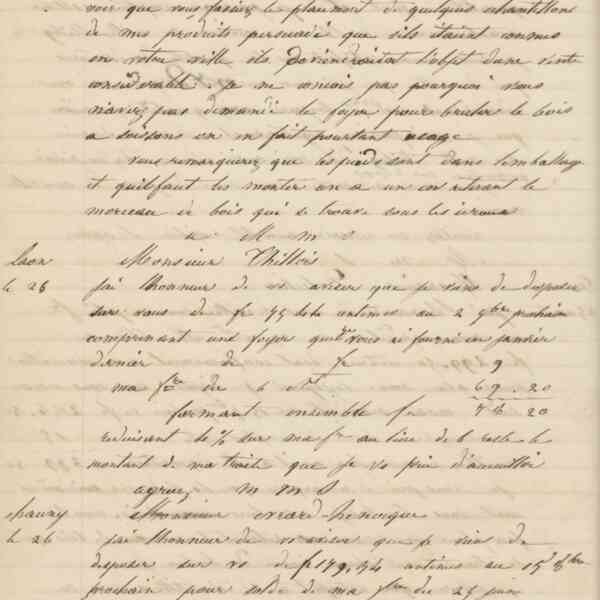 voir que vous fassiez le placement de quelques échantillons
de mes produits persuadé que s'ils étaient connus
en votre ville ils deviendraient l'objet d'une vente
considérable. je ne conçois pas pourquoi vous
n'avez pas demandé le foyer pour bruler le bois
a soissons on en fait pourtant usage
vous remarquerez que les pieds sont dans l'emballage
et qu'il faut les monter un a un en retirant le
morceau de bois qui se trouve sous les
a M m s
Laon Monsieur Thillois
le 26 j'ai l'honneur de vs aviser que je viens de disposer
sur vous de fr 75 centimes au 2 9bre prochain
comprenant une foyer que je vous ai fourni en janvier
dernier de fr 9
ma fre du 6 69.20
formant ensemble fr 78 20
réduisant de % sur ma fre au lieu de 6 reste le
montant de ma traite que je vs prie d'accueillir
agréez m m s
chauny Monsieur evrard-henocque
le 26 j'ai l'honneur de vs aviser que je viens de
disposer sur vs de fr 179,34 centimes au 15 8bre
prochain pour solde de ma fre du 25 juin